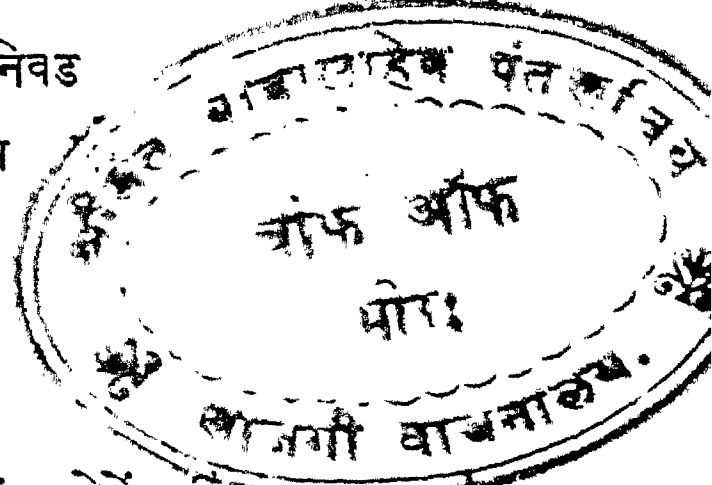 निवड
बाबासाहेब पंतसचिव
चीफ ऑफ
भोर:
खाजगी वाचनालय.